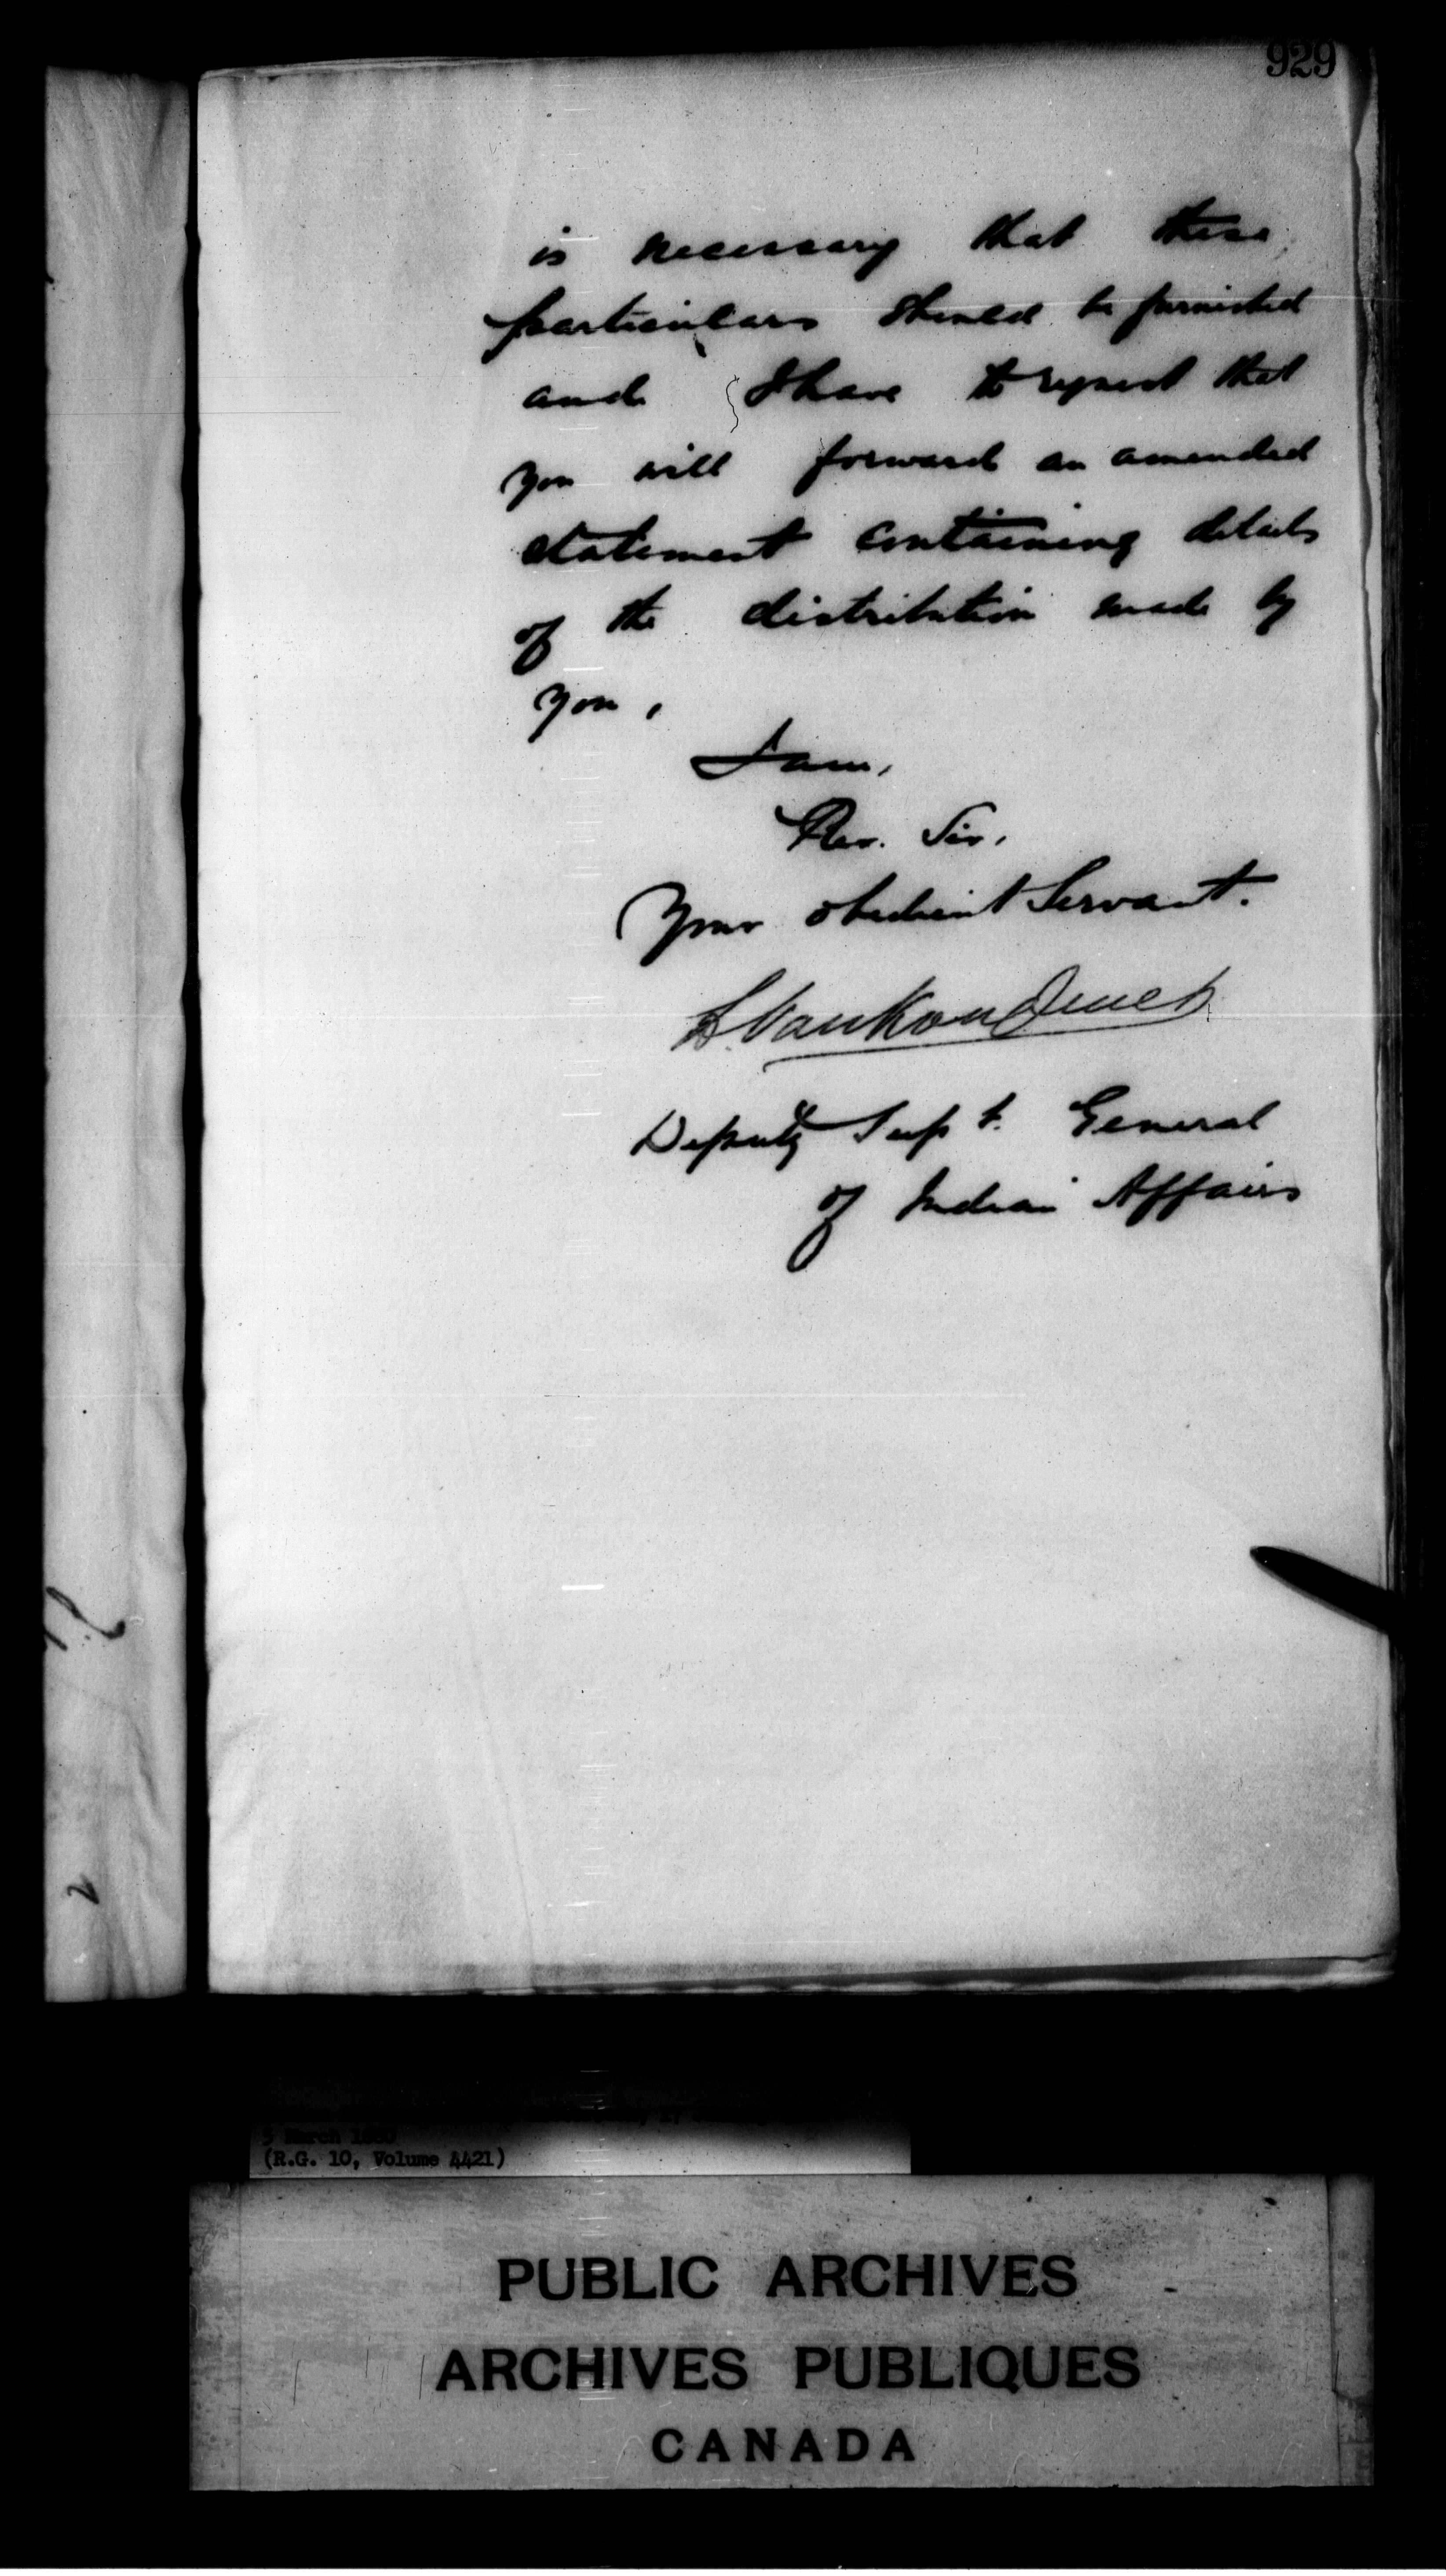 929
is necessary that these
particulars should be furnished
and I have to request that
you will forward an amended
statement containing details
of the distribution made by
you,
I am,
Rev. Sir,
Your obedient Servant.
L. VanKoughnet
Deputy Supt. General
of Indian Affairs
5 March 1880
(R.G. 10, Volume 4421)
PUBLIC ARCHIVES
ARCHIVES PUBLIQUES
CANADA